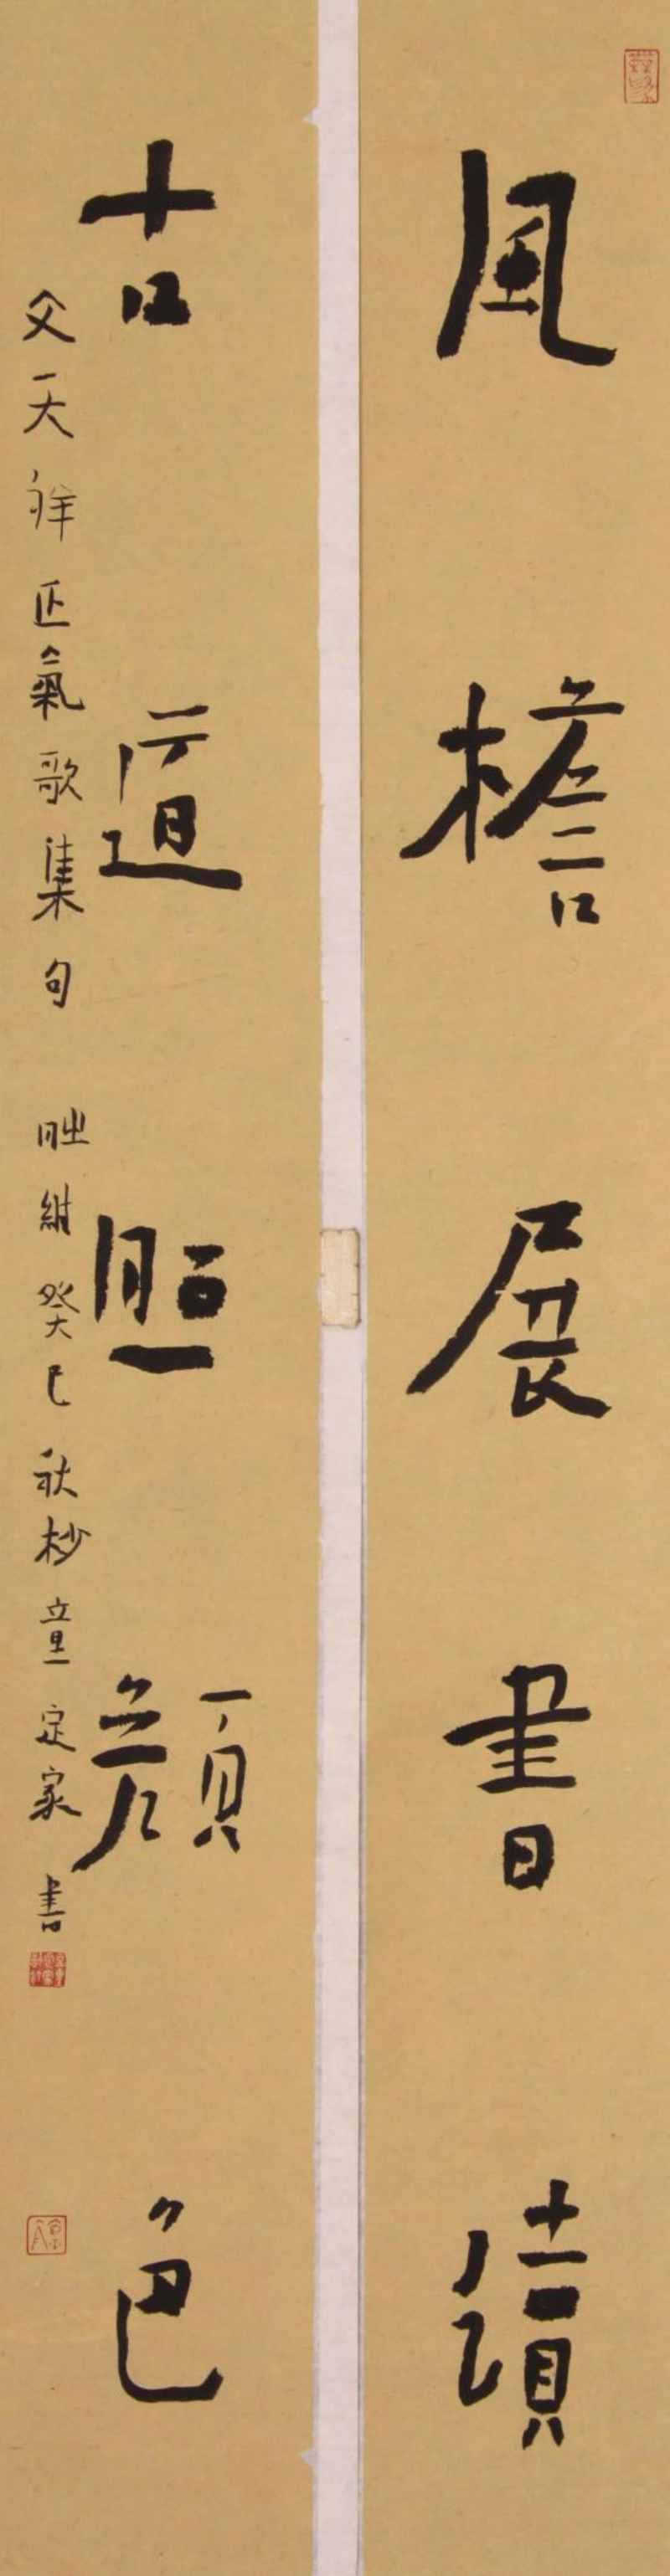 風檐展書讀
古道照顏色
文天祥正氣歌集句 癸巳秋杪童定家書